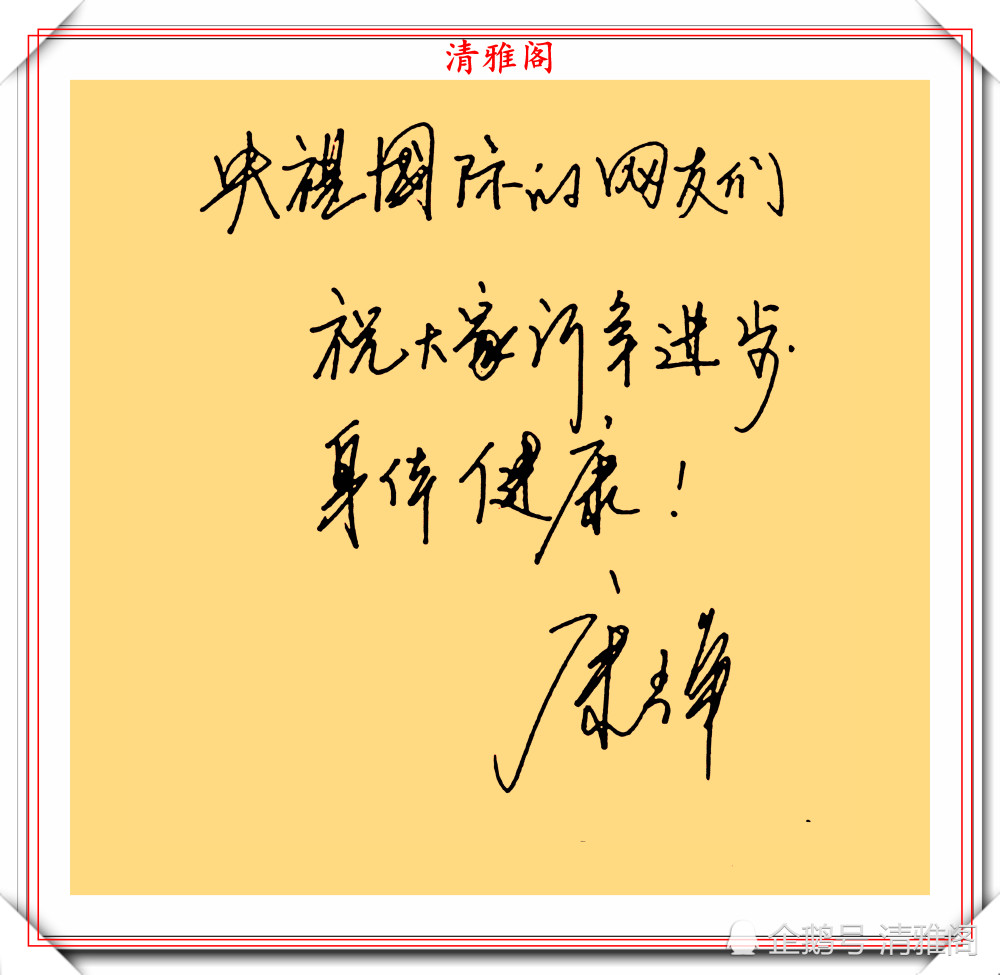 清雅阁
央視國际的网友们
祝大家新年进步
身体健康!
康辉
企鹅号 清雅阁